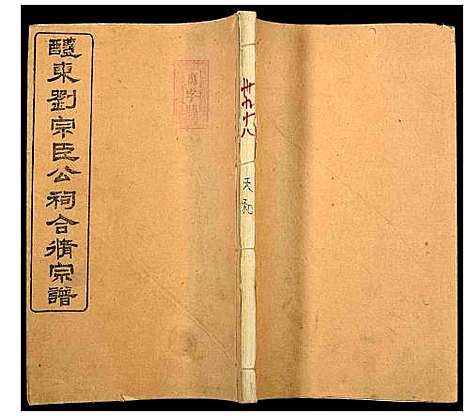 醴東劉宗臣公祠合脩宗譜
天和